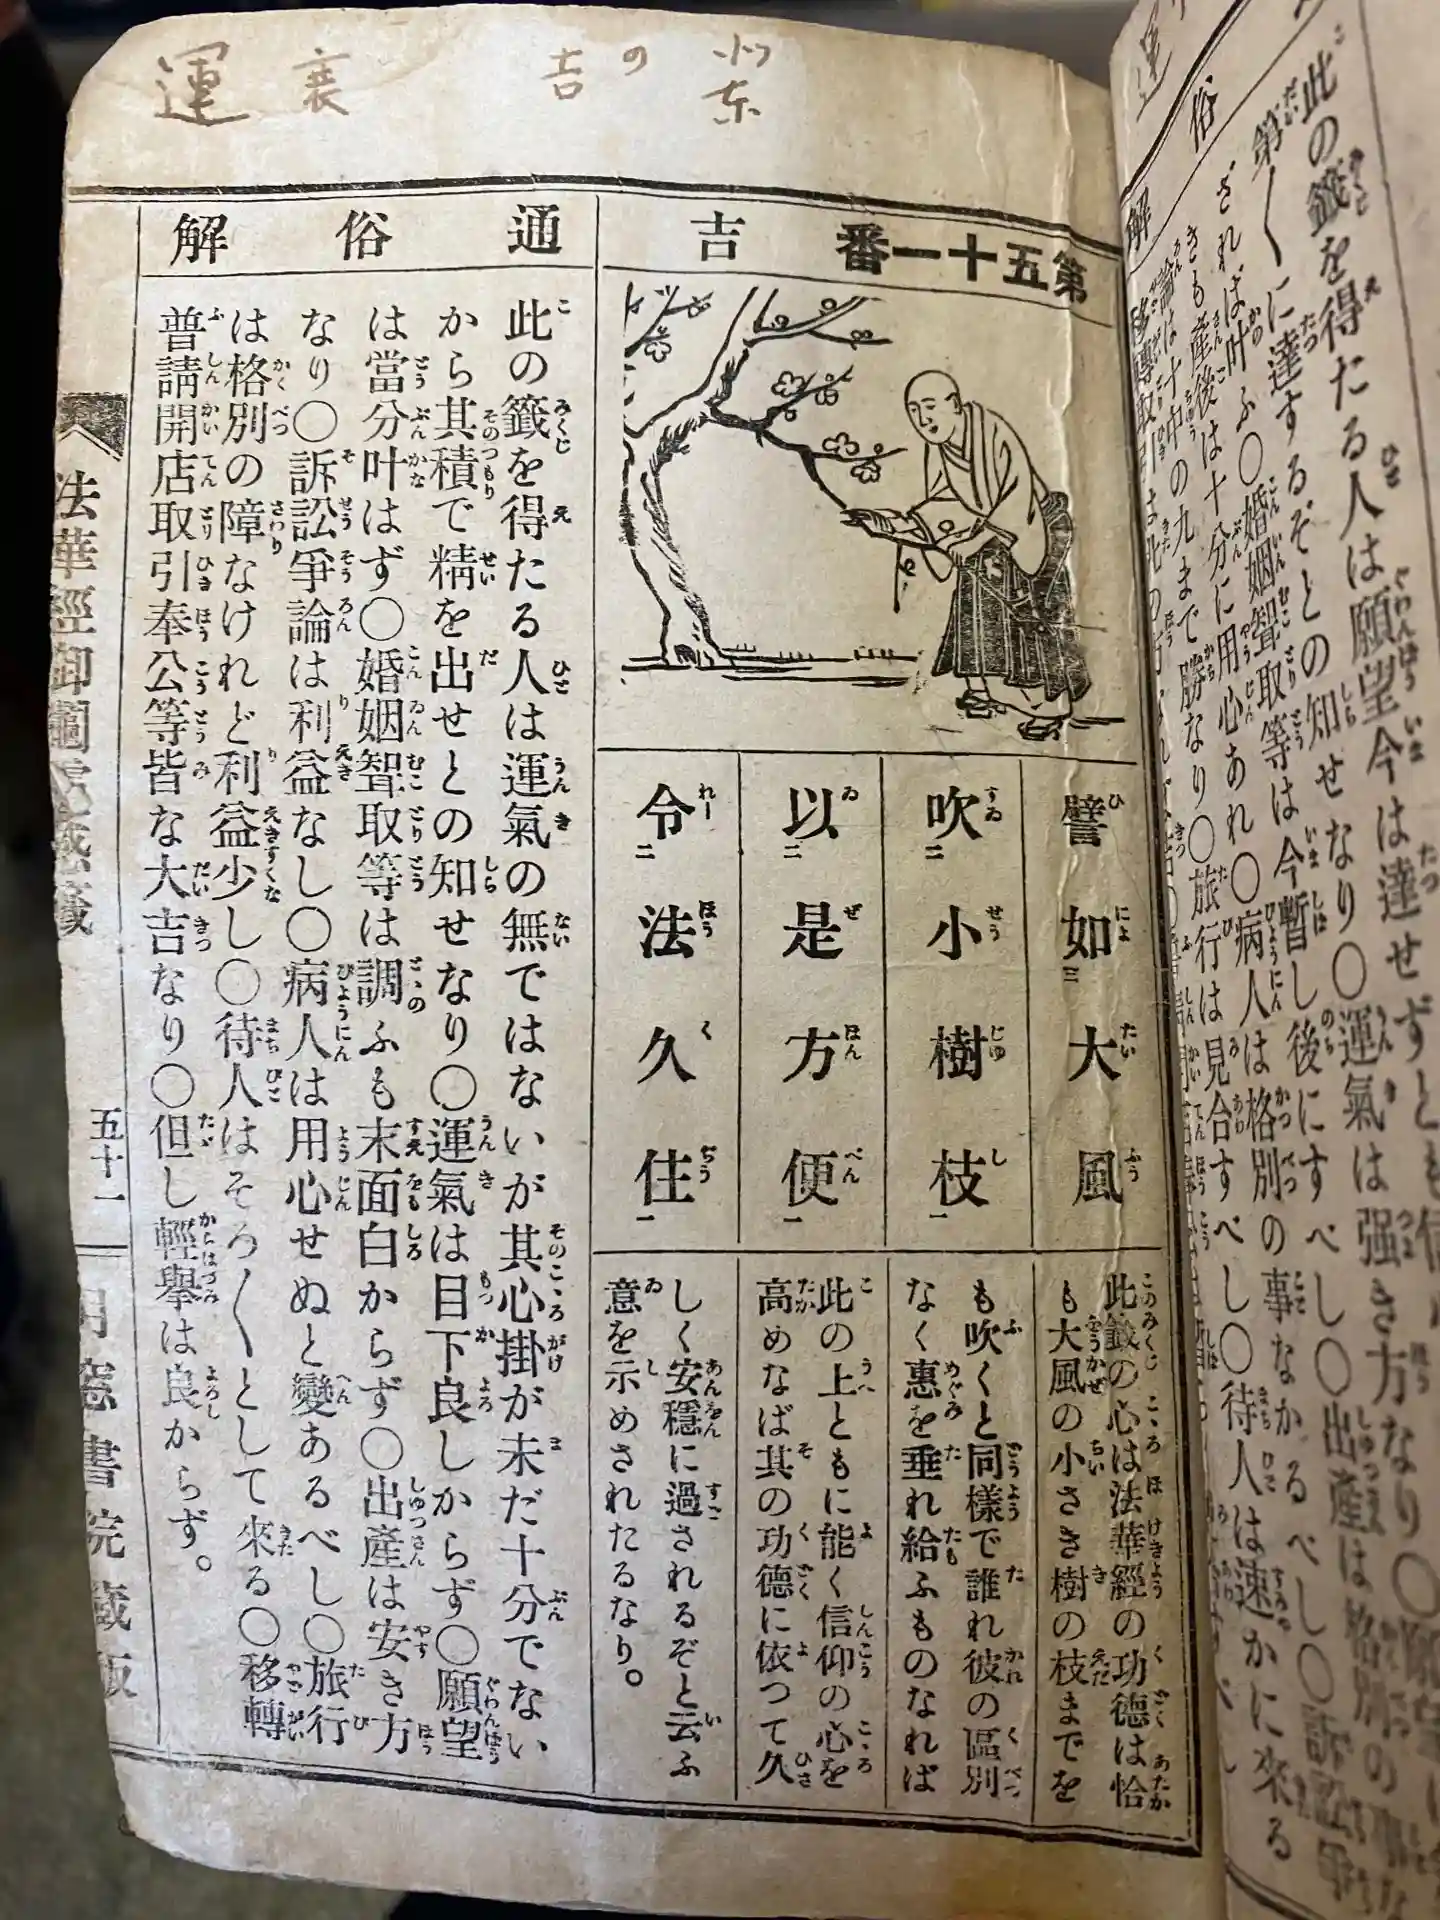 此の籤を得たる人は願望今は達せずとも信
第〱に達するぞとの知せなり〇運氣は强き方なり〇
されば叶ふ〇婚姻聟取等は今暫し後にすべし〇出產は格別の
きも產後は十分に用心あれ〇病人は格別の事なかるべし〇訴訟爭
論は十中の九まで勝なり〇旅行は見合すべし〇待人は速かに來る
俗
解
運
の
吉
衰
運
第五十一番
吉
譬如大風
吹小樹枝
以是方便
令法久住
此籤の心は法華經の功德は恰
も大風の小さき樹の枝までを
も吹くと同樣で誰れ彼の區別
なく惠を垂れ給ふものなれば
此の上ともに能く信仰の心を
高めなば其の功德に依つて久
しく安穩に過されるぞと云ふ
意を示めされたるなり。
通俗解
此の籤を得たる人は運氣の無ではないが其心掛が未だ十分でない
から其積で精を出せとの知せなり〇運氣は目下良しからず〇願望
は當分叶はず〇婚姻聟取等は調ふも末面白からず〇出產は安き方
なり〇訴訟爭論は利益なし〇病人は用心せぬと變あるべし〇旅行
は格別の障なけれど利益少し〇待人はそろ〱として來る〇移轉
普請開店取引奉公等皆な大吉なり〇但し輕擧は良からず。
法華經御鬮
五十一
書院藏版